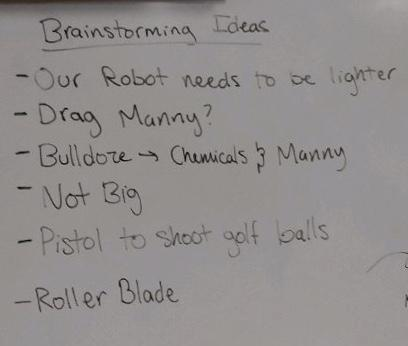 Brainstorming Ideas
- Our Robot needs to be lighter
- Drag Manny?
- Bulldoze → Chemicals & Manny
- Not Big
- Pistol to shoot golf balls
- Roller Blade